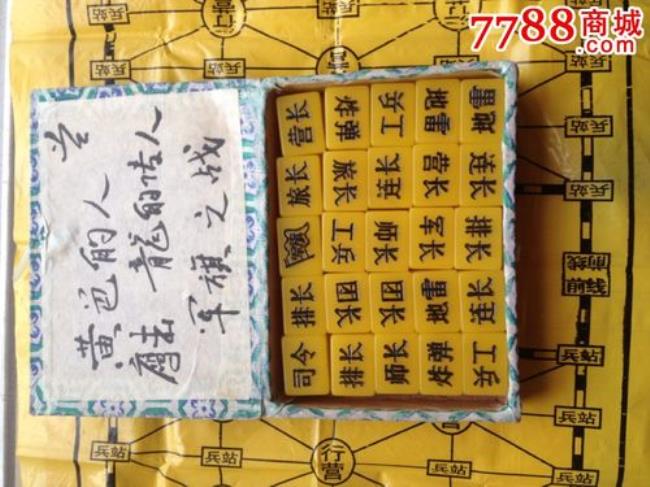 7788商城
.com
行营
兵站
兵站
兵站
黄色的人
龍的传人
军旗之战
营长 炸弹 工兵 地雷 地雷
旅长 旅长 连长 营长 连长
军旗 工兵 师长 军长 排长
排长 团长 团长 地雷 连长
司令 排长 师长 炸弹 工兵
兵站
前线
兵站
兵站
行营
兵站